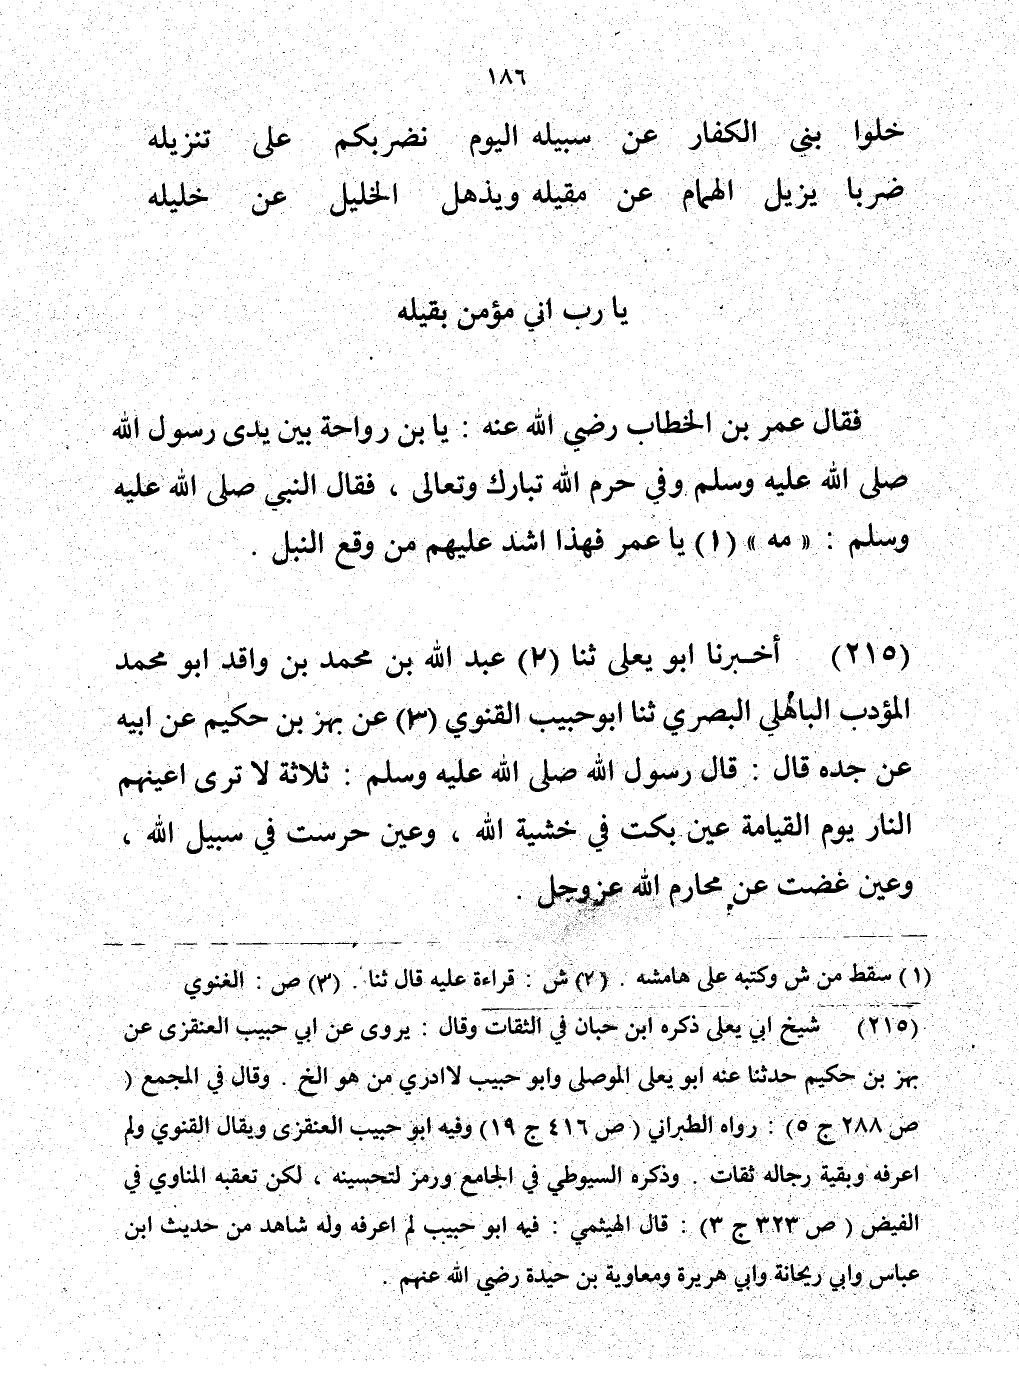 ١٨٦
خلوا بني الكفار عن سبيله اليوم نضربكم على تنزيله
ضربا يزيل الهام عن مقيله ويذهل الخليل عن خليله
يا رب اني مؤمن بقيله
فقال عمر بن الخطاب رضي الله عنه : يا بن رواحة بين يدى رسول الله
صلى الله عليه وسلم وفي حرم الله تبارك وتعالى ، فقال النبي صلى الله عليه
وسلم : « مه » (١) يا عمر فهذا اشد عليهم من وقع النبل .
(٢١٥) أخبرنا ابو يعلى ثنا (٢) عبد الله بن محمد بن واقد ابو محمد
المؤدب الباهلي البصري ثنا ابوحبيب القنوي (٣) عن بهز بن حكيم عن ابيه
عن جده قال : قال رسول الله صلى الله عليه وسلم : ثلاثة لا ترى اعينهم
النار يوم القيامة عين بكت في خشية الله ، وعين حرست في سبيل الله ،
وعين غضت عن محارم الله عزوجل .
(١) سقط من ش وكتبه على هامشه . (٢) ش : قراءة عليه قال ثنا . (٣) ص : الغنوي
(٢١٥) شيخ ابي يعلى ذكره ابن حبان في الثقات وقال : يروى عن ابي حبيب العنقزى عن
بهز بن حكيم حدثنا عنه ابو يعلى الموصلى وابو حبيب لاادري من هو الخ . وقال في المجمع (
ص ٢٨٨ ج ٥) : رواه الطبراني ( ص ٤١٦ ج ١٩) وفيه ابو حبيب العنقزى ويقال القنوي ولم
اعرفه وبقية رجاله ثقات . وذكره السيوطي في الجامع ورمز لتحسينه ، لكن تعقبه المناوي في
الفيض ( ص ٣٢٣ ج ٣) : قال الهيثمي : فيه ابو حبيب لم اعرفه وله شاهد من حديث ابن
عباس وابي ريحانة وابي هريرة ومعاوية بن حيدة رضي الله عنهم .